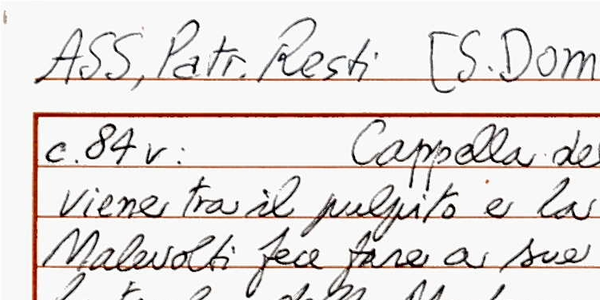 ASS, Patr. Resti [S. Dom
c. 84 v: Cappella de
viene tra il pulpito e la
Malevolti fece fare a sue